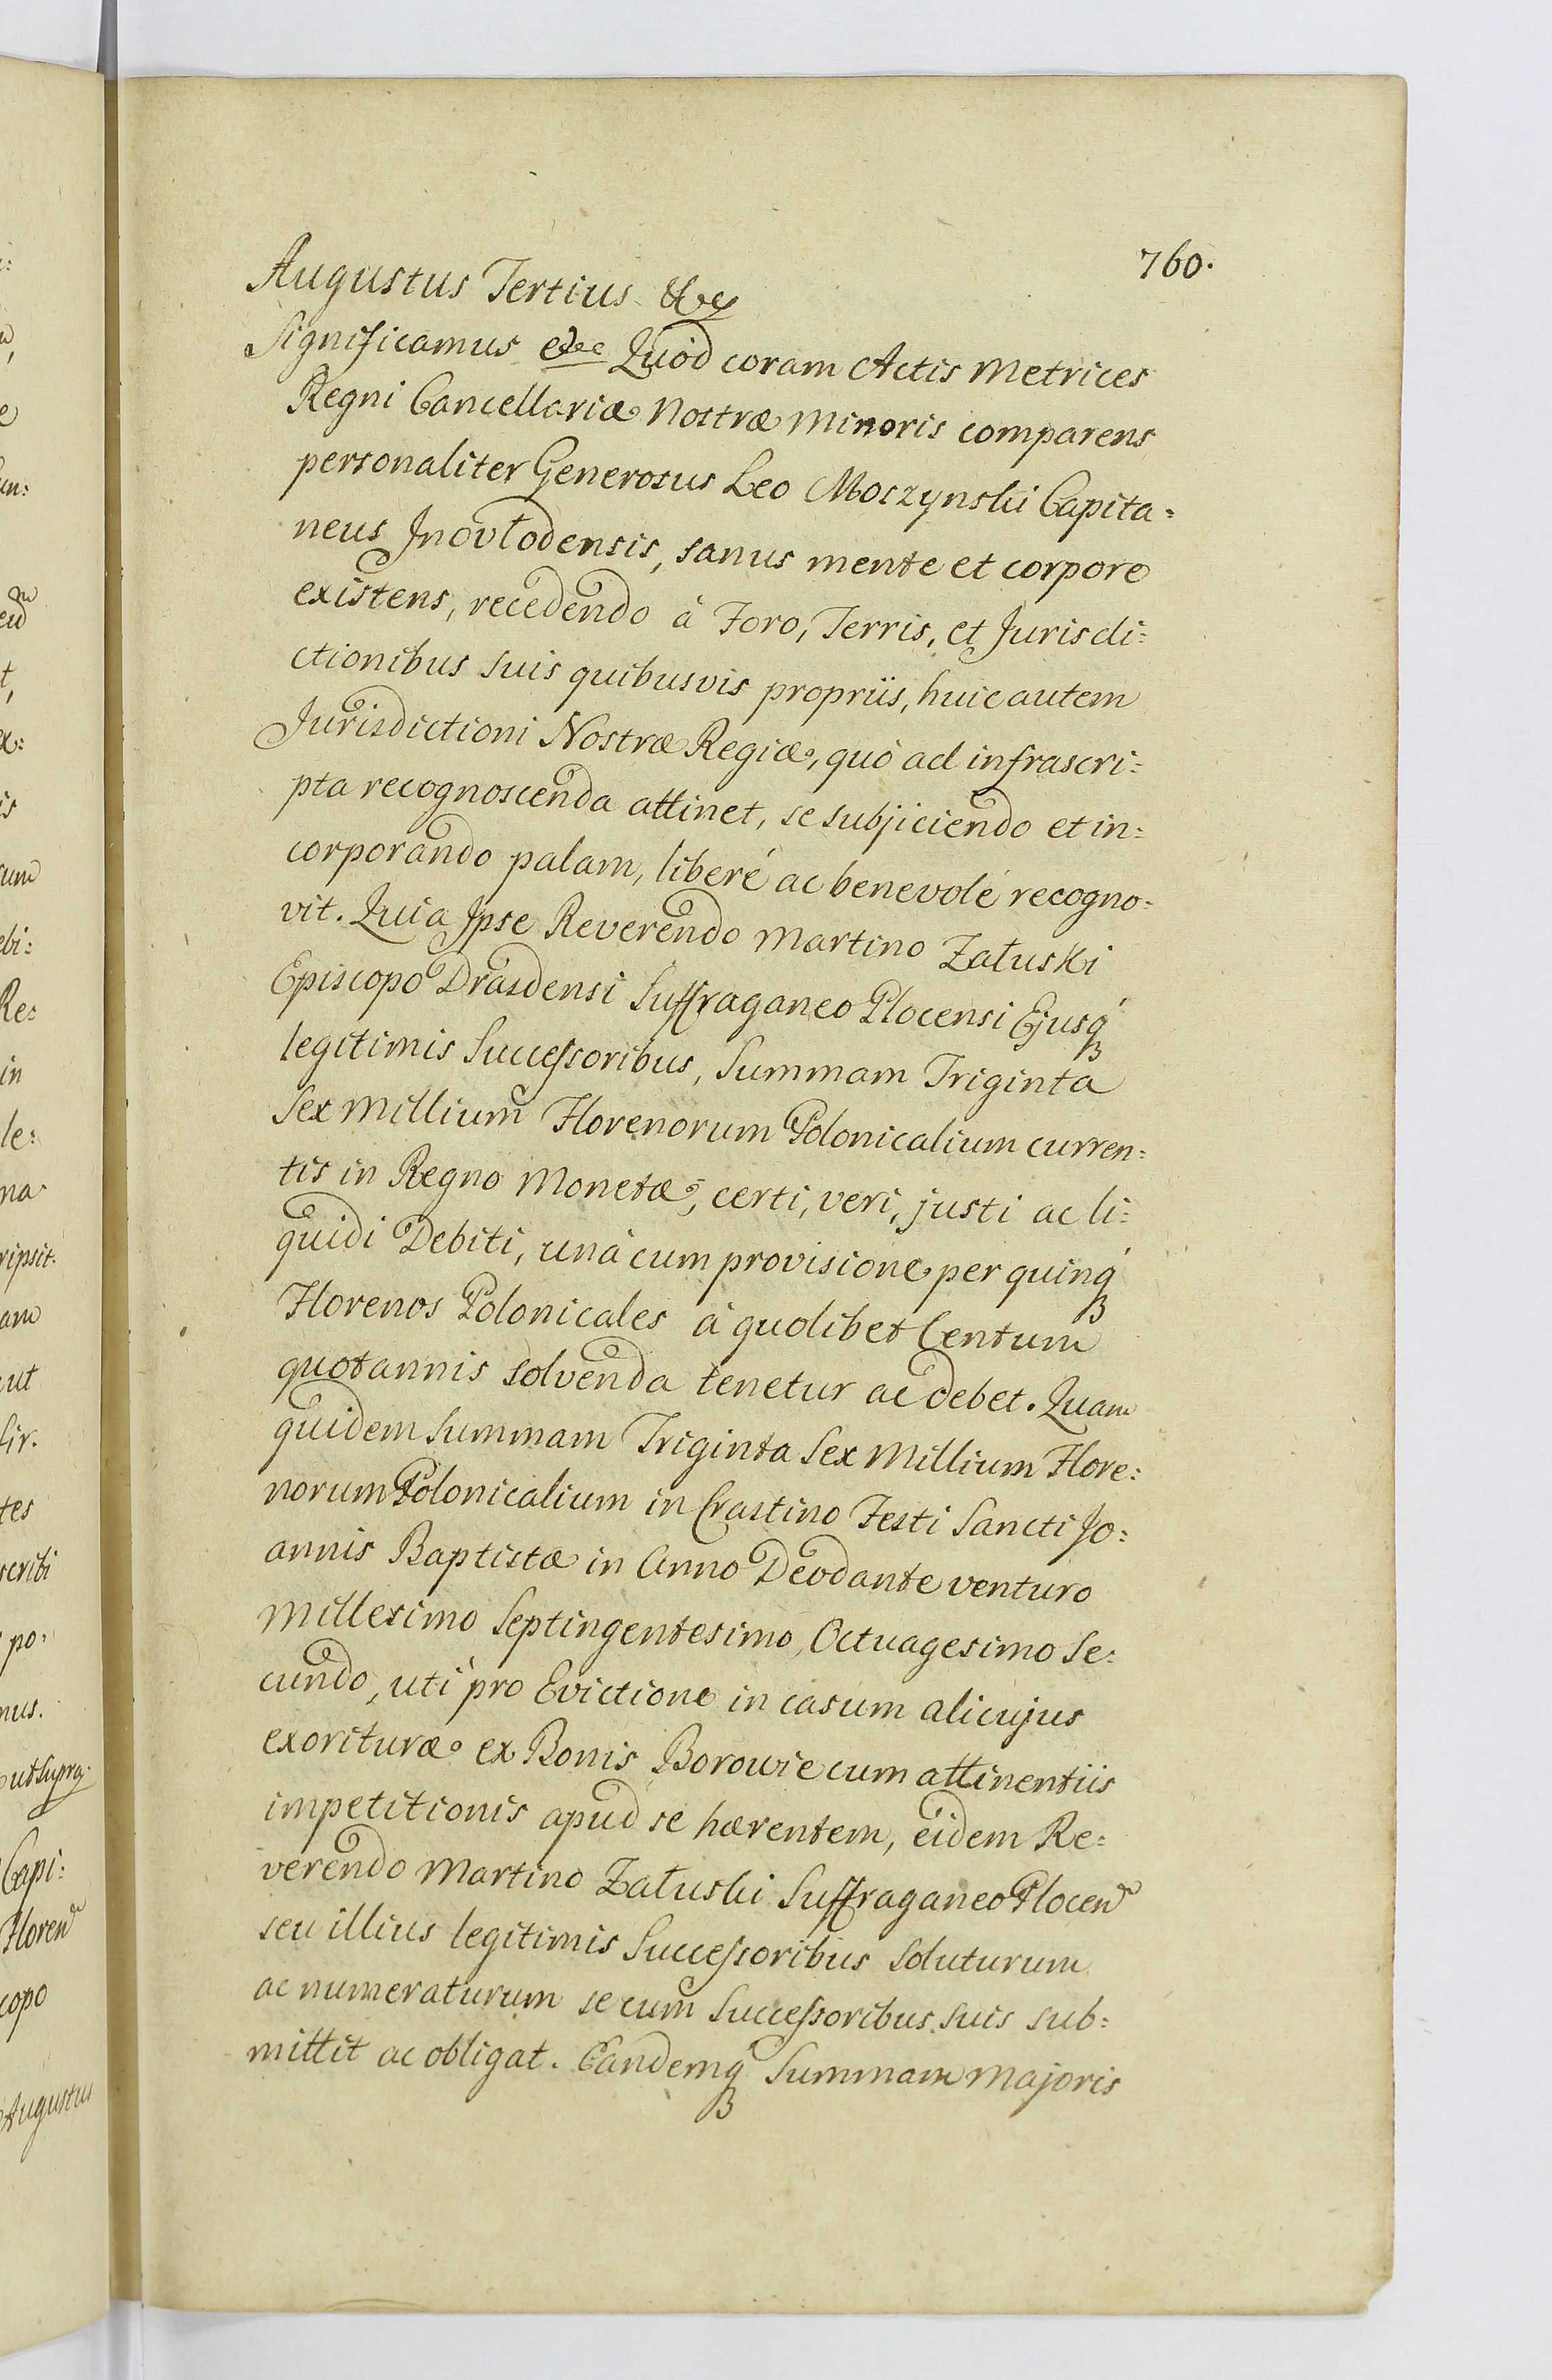 760.
Augustus Tertius &c
Significamus etc Quòd coram Actis Metrices
Regni Cancellariæ Nostræ Minoris comparens
personaliter Generosus Leo Moszynski Capita=
neus Inovłodensis, sanus mente et corpore
existens, recedendo à Foro, Terris, et Jurisdi=
ctionibus suis quibusvis propriis, huic autem
Jurisdictioni Nostræ Regiæ, quò ad infrascri=
pta recognoscenda attinet, se subjiciendo et in=
corporando palam, liberé ac benevolé recogno=
vit. Quia Ipse Reverendo Martino Załuski
Episcopo Drasdensi Suffraganeo Plocensi Ejusq́
legitimis Successoribus, Summam Triginta
Sex Millium Florenorum Polonicalium curren=
tis in Regno Monetæ, certi, veri, justi ac li=
quidi Debiti, unà cum provisione per quinq́
Florenos Polonicales à quolibet Centum
quotannis solvenda tenetur ac debet. Quam
quidem Summam Triginta Sex Millium Flore=
norum Polonicalium in Crastino Festi Sancti Jo=
annis Baptistæ in Anno Deo dante venturo
Millesimo Septingentesimo, Octuagesimo Se=
cundo, uti pro Evictione in casum alicujus
exorituræ ex Bonis Borowie cum attinentiis
impetitionis apud se hærentem, eidem Re=
verendo Martino Załuski Suffraganeo Plocen
seu illius legitimis Successoribus soluturum
ac numeraturum se cum Successoribus suis sub=
mittit ac obligat. Eandemq́ Summam Majoris
sum
ebi:
Re:
in
le:
na
ripsit.
am
ut
tes
scribi
po:
mus.
ut Supra.
Capi:
Floren
copo
Augustus